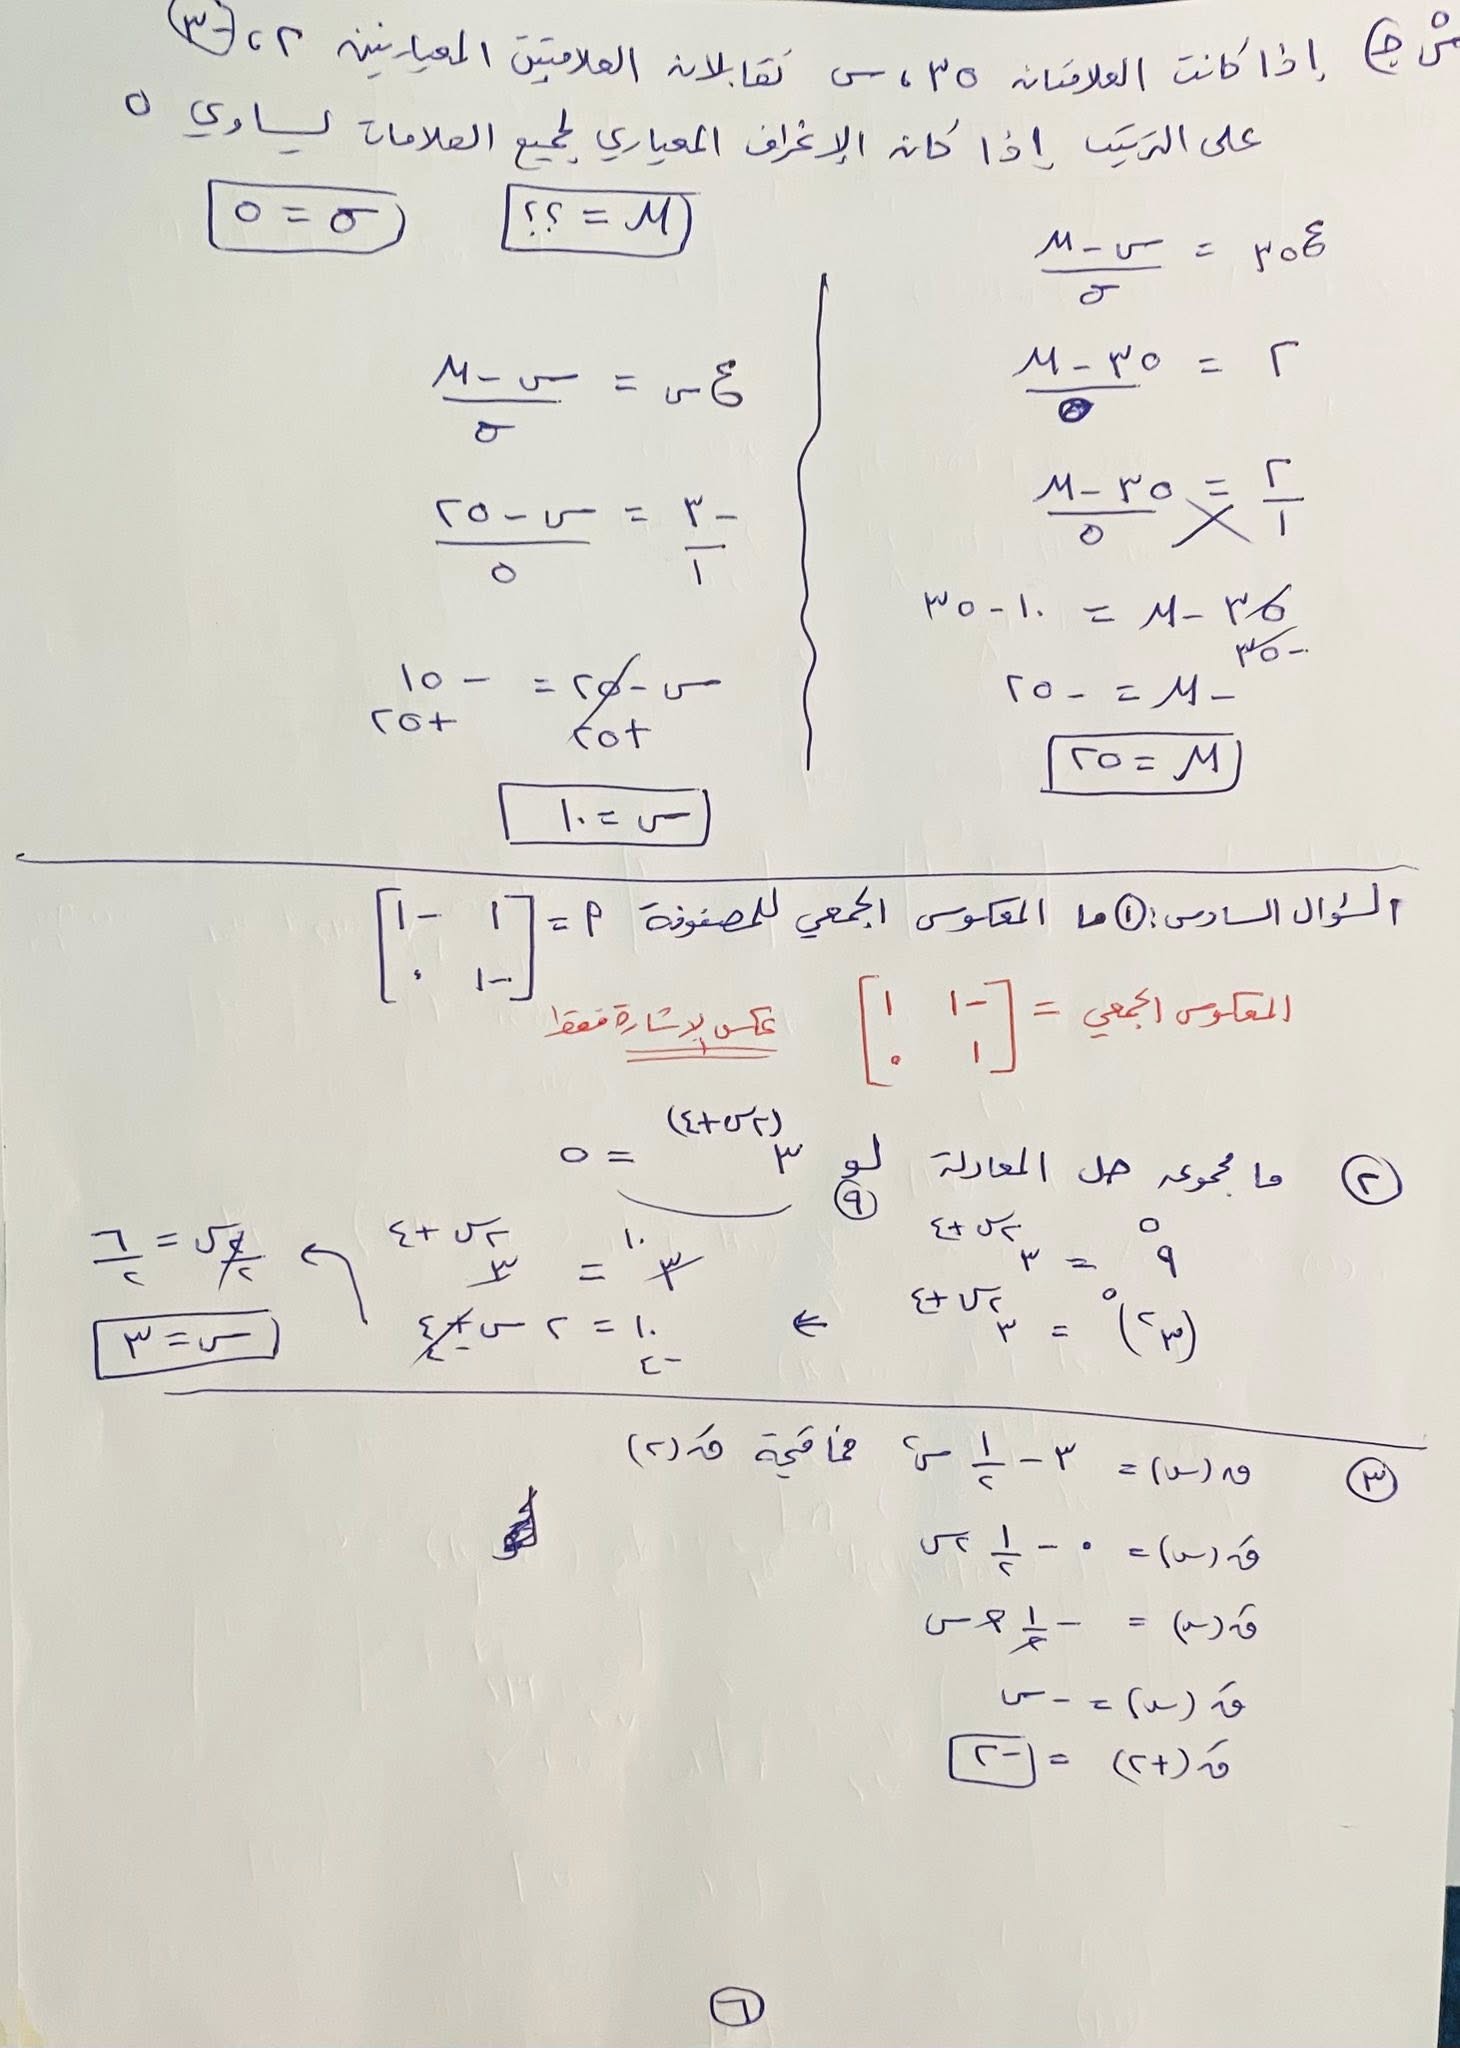 س ج) إذا كانت العلامتان ٣٥، س تقابلان العلامتين المعياريتين ٢، (-٣)
على الترتيب إذا كان الإنحراف المعياري لجميع العلامات يساوي ٥
μ = ؟؟ σ = ٥
ع٣٥ = (س - μ) / σ
٢ = (٣٥ - μ) / ٥
٢/١ = (٣٥ - μ) / ٥
٣٥ - μ = ١٠ - ٣٥
-٣٥
-μ = -٢٥
μ = ٢٥
عس = (س - μ) / σ
-٣/١ = (س - ٢٥) / ٥
س - ٢٥ = -١٥
+٢٥ +٢٥
س = ١٠
السؤال السادس: ① ما المعكوس الجمعي للمصفوفة P = [١ -١]
[-١ ٠]
المعكوس الجمعي = [-١ ١] عكس الإشارة فقط
[١ ٠]
② ما مجموعة حل المعادلة لو٩ ٣^(٢س+٤) = ٥
٩^٥ = ٣^(٢س+٤)
(٣^٢)^٥ = ٣^(٢س+٤) ←
٣^١٠ = ٣^(٢س+٤)
١٠ = ٢س + ٤
-٤ -٤
٢س/٢ = ٦/٢
س = ٣
③ ق(س) = ٣ - ١/٢ س^٢ فما قيمة قَ(٢)
قَ(س) = ٠ - ١/٢ ٢س
قَ(س) = - ١/٢ ٢ س
قَ(س) = -س
قَ(+٢) = -٢
٦